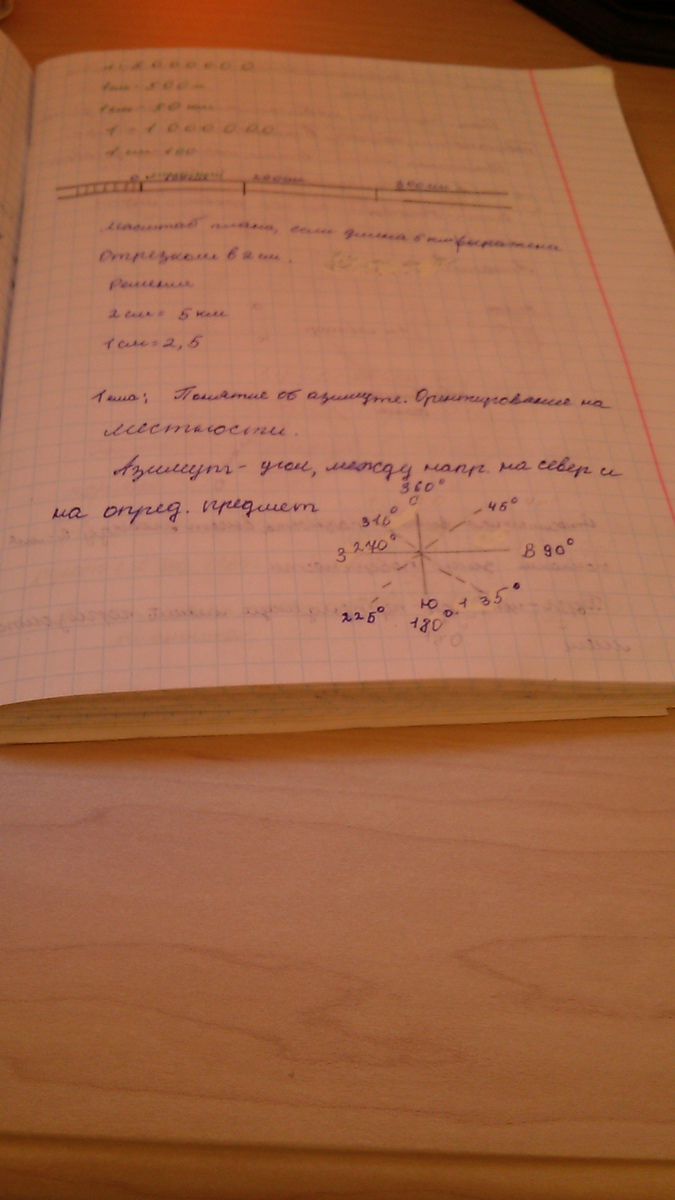 1см - 500м
1см - 50 км
1 = 1 0 0 0 0 0 0
1 см 100
0
300км
Масштаб плана, если длина 5 км выражена
Отрезком в 2 см.
Решение
2 см = 5 км
1 см = 2,5
Тема: Понятие об азимуте. Ориентирование на
местности.
Азимут - угол, между напр. на север и
на опред. предмет
360°
С
45°
310°
З 270°
В 90°
Ю
135°
225°
180°